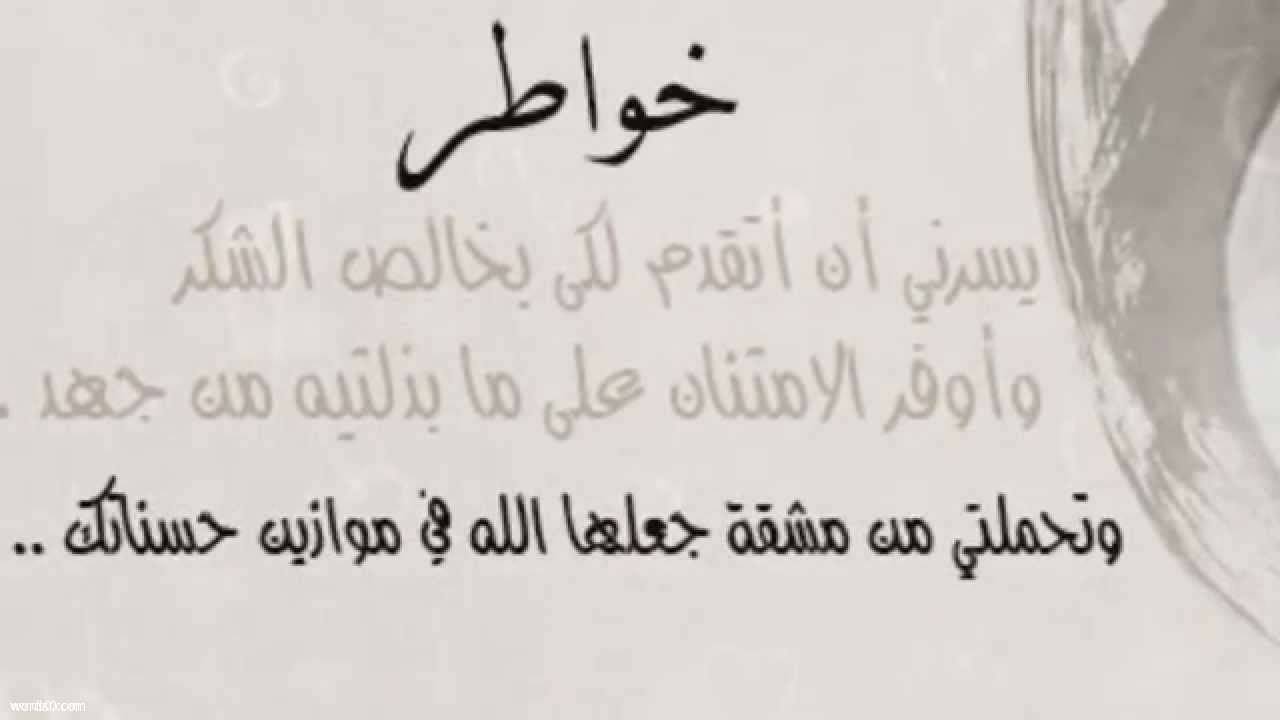 خواطر
يسرني أن أتقدم لكى بخالص الشكر
وأوفر الامتنان على ما بذلتيه من جهد .
وتحملتي من مشقة جعلها الله في موازين حسناتك ..
words0.com